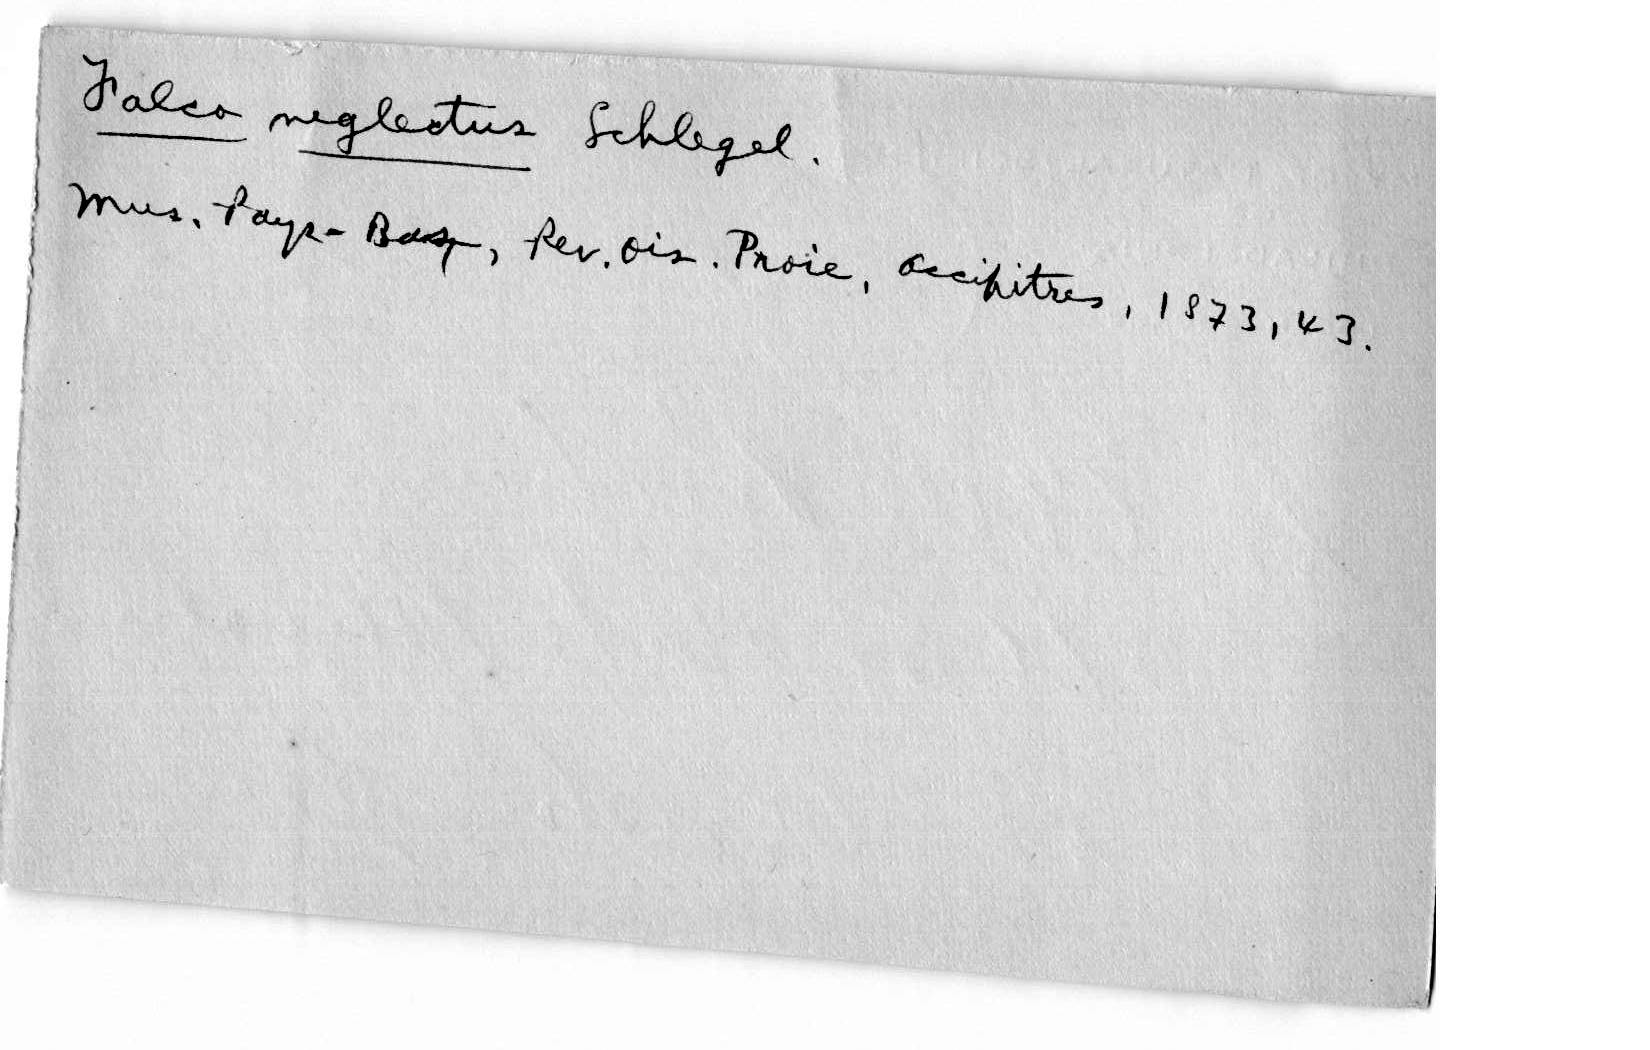 Falco neglectus Schlegel.
Mus. Pays-Bas, Rev. ois. Proie, Accipitres, 1873, 43.